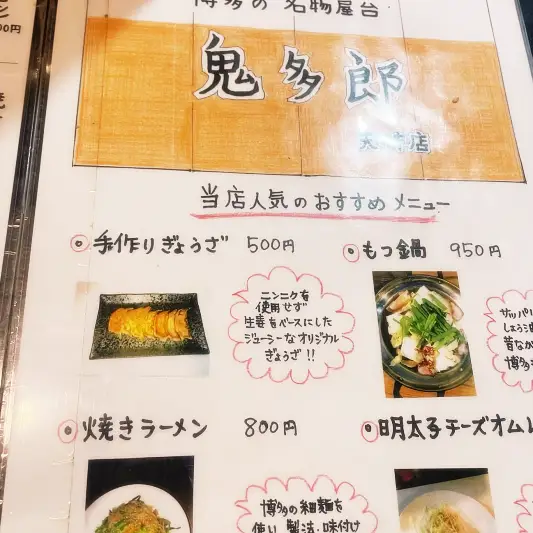 博多の名物屋台
鬼多郎
店
当店人気のおすすめメニュー
手作りぎょうざ 500円
もつ鍋 950円
ニンニクを
使用せず
生姜をベースにした
ジューシーなオリジナル
ぎょうざ!!
サッパリ
しょうゆ
昔なが
博多
焼きラーメン 800円
明太子チーズオムレ
博多の細麺を
使い、製法・味付け